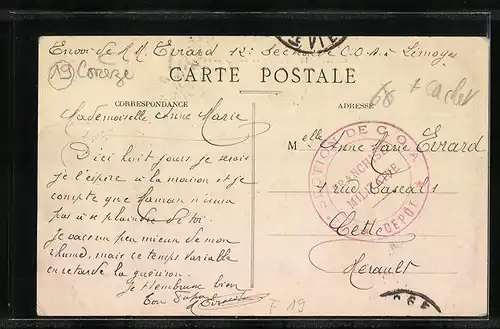 Envoi de M. M. Evrard 12e Section de C.O.A. à Limoges
19 Correze
CARTE POSTALE
68 + cachet
CORRESPONDANCE
ADRESSE
Mademoiselle Anne Marie
D'ici huit jours je serais
je l'espère à la maison et je
compte que Maman n'aura
pas à se plaindre de toi.
Je vais un peu mieux de mon
rhume, mais ce temps variable
en retarde la guérison.
Je t'embrasse bien
Ton Papa
Melle Anne Marie Evrard
1 rue Pascal
Cette
Herault
SECTION DE C.O.A.
FRANCHISE
MILITAIRE
DEPÔT
F 19